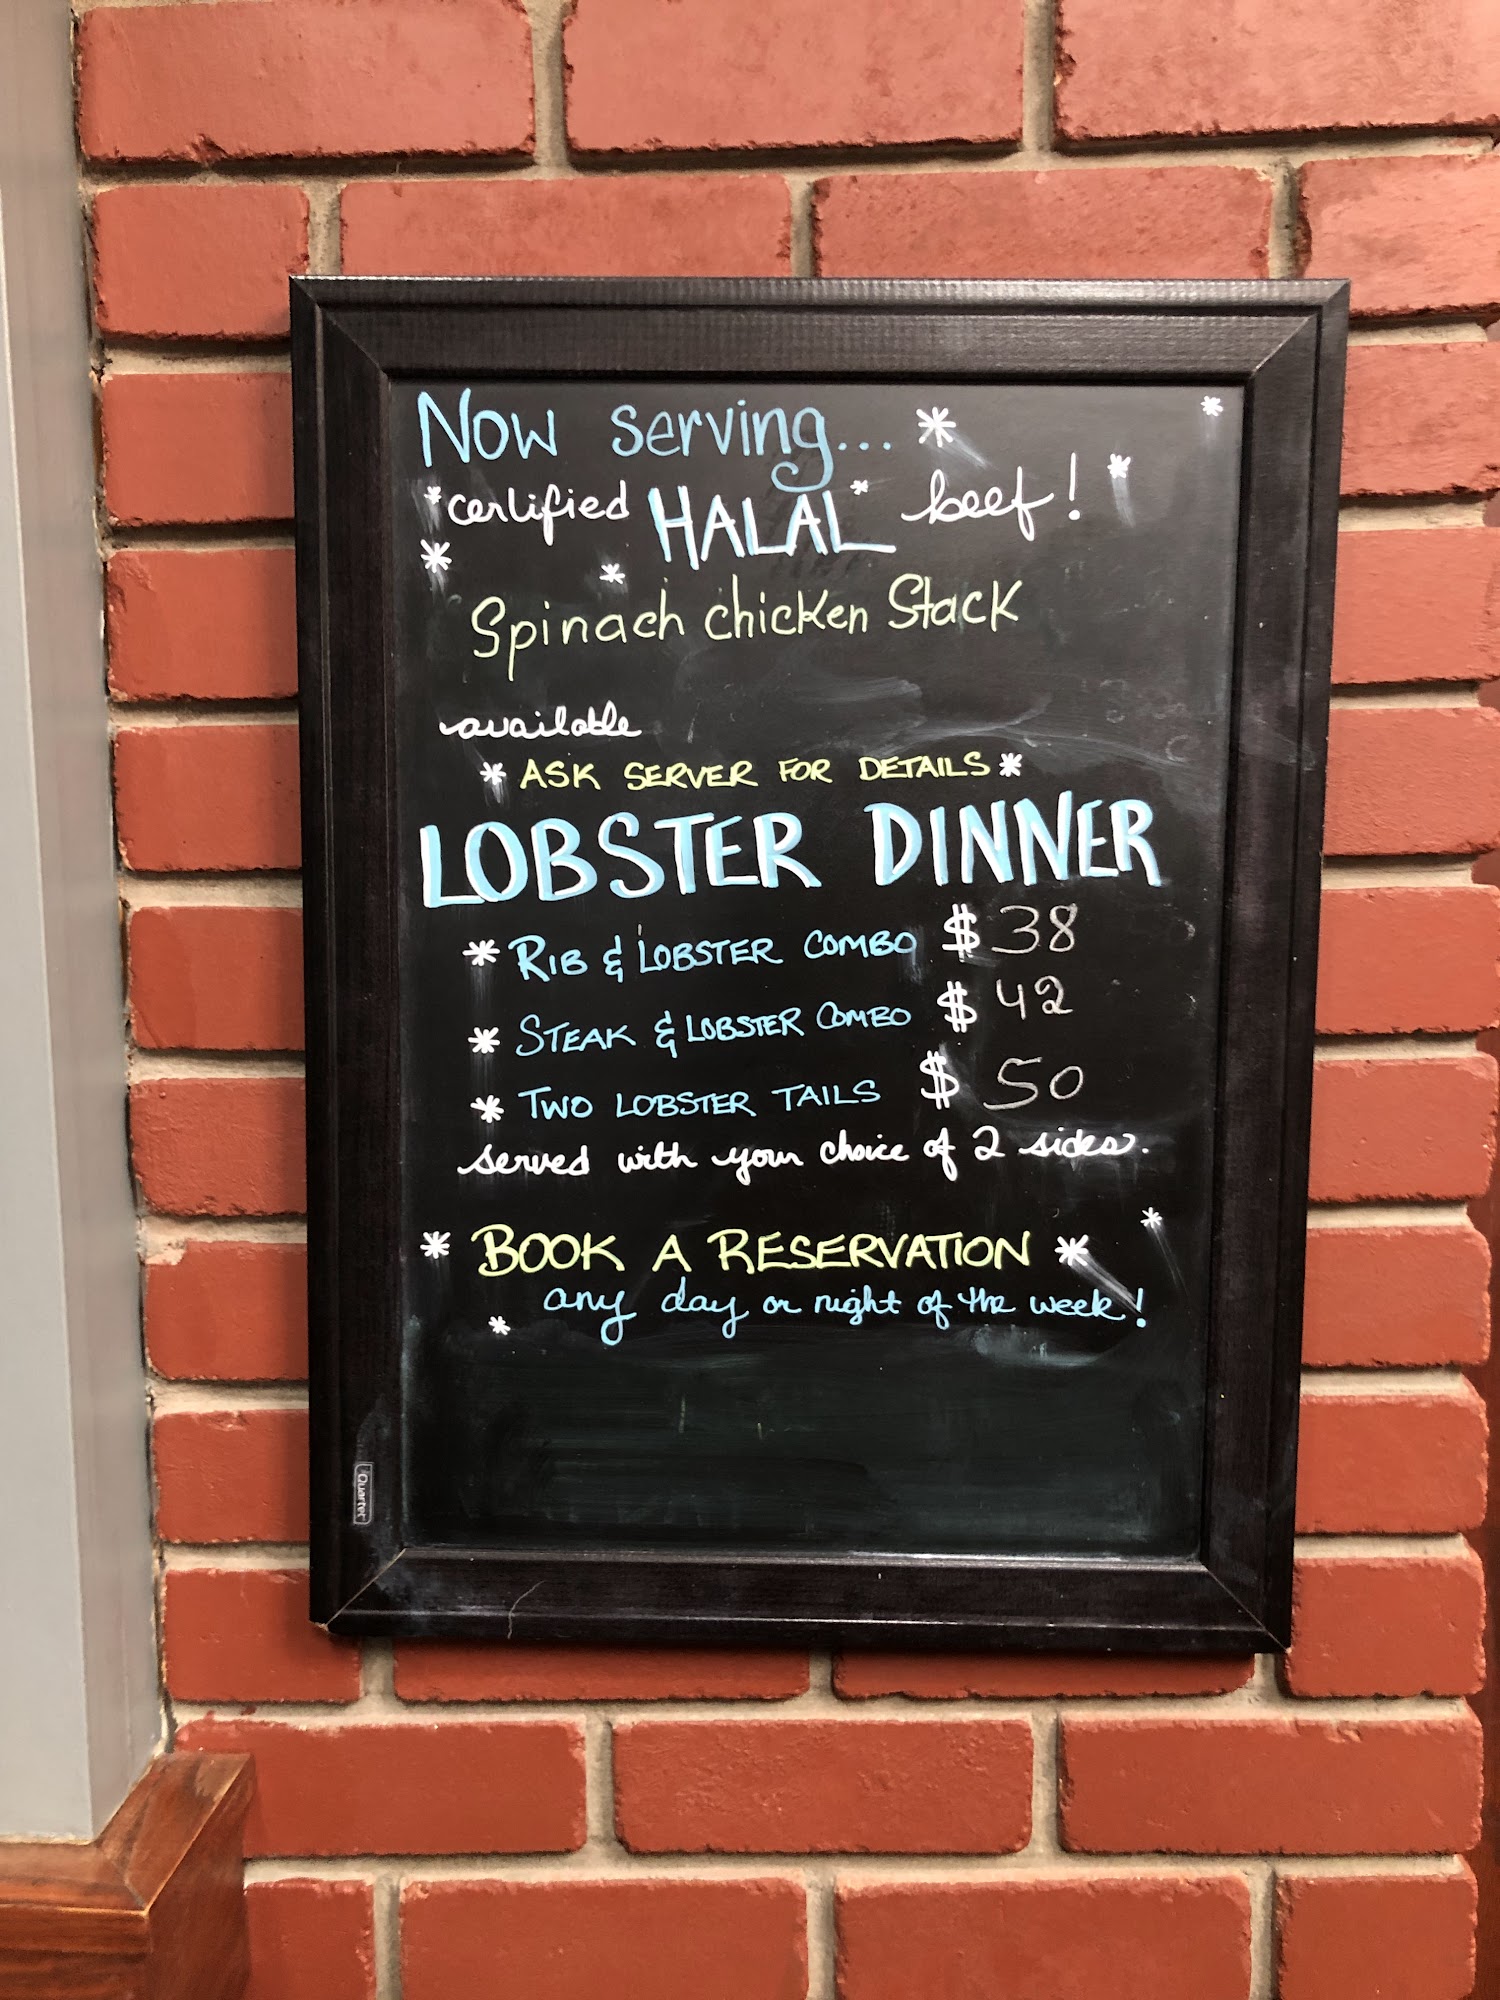 Now serving...
*certified HALAL* beef!
Spinach chicken Stack
available
* ASK SERVER FOR DETAILS *
LOBSTER DINNER
* RIB & LOBSTER COMBO $38
* STEAK & LOBSTER COMBO $42
* TWO LOBSTER TAILS $50
served with your choice of 2 sides.
* BOOK A RESERVATION *
any day or night of the week!
Quartet